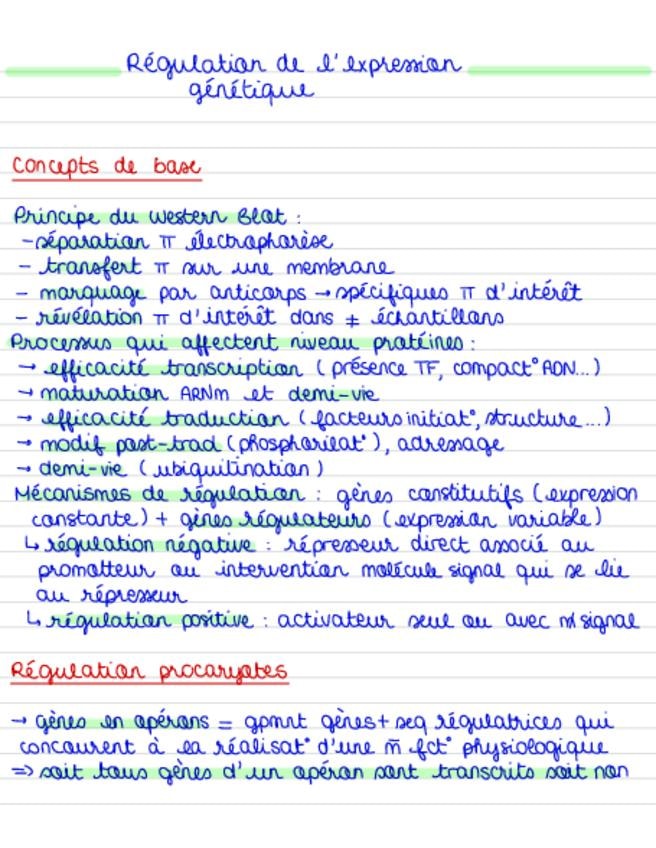 Régulation de l'expression
génétique
Concepts de base
Principe du Western Blot :
- séparation π électrophorèse
- transfert π sur une membrane
- marquage par anticorps → spécifiques π d'intérêt
- révélation π d'intérêt dans ± échantillons
Processus qui affectent niveau protéines :
→ efficacité transcription ( présence TF, compact° ADN...)
→ maturation ARNm et demi-vie
→ efficacité traduction ( facteurs initiat°, structure ...)
→ modif post-trad ( phosphorilat° ), adressage
→ demi-vie ( ubiquitination )
Mécanismes de régulation : gènes constitutifs ( expression
constante ) + gènes régulateurs ( expression variable )
↳ régulation négative : répresseur direct associé au
promotteur ou intervention molécule signal qui se lie
au répresseur
↳ régulation positive : activateur seul ou avec signal
Régulation procaryotes
→ gènes en opérons = gpmnt gènes + seq régulatrices qui
concourent à la réalisat° d'une m̄ fct° physiologique
=> soit tous gènes d'un opéron sont transcrits soit non